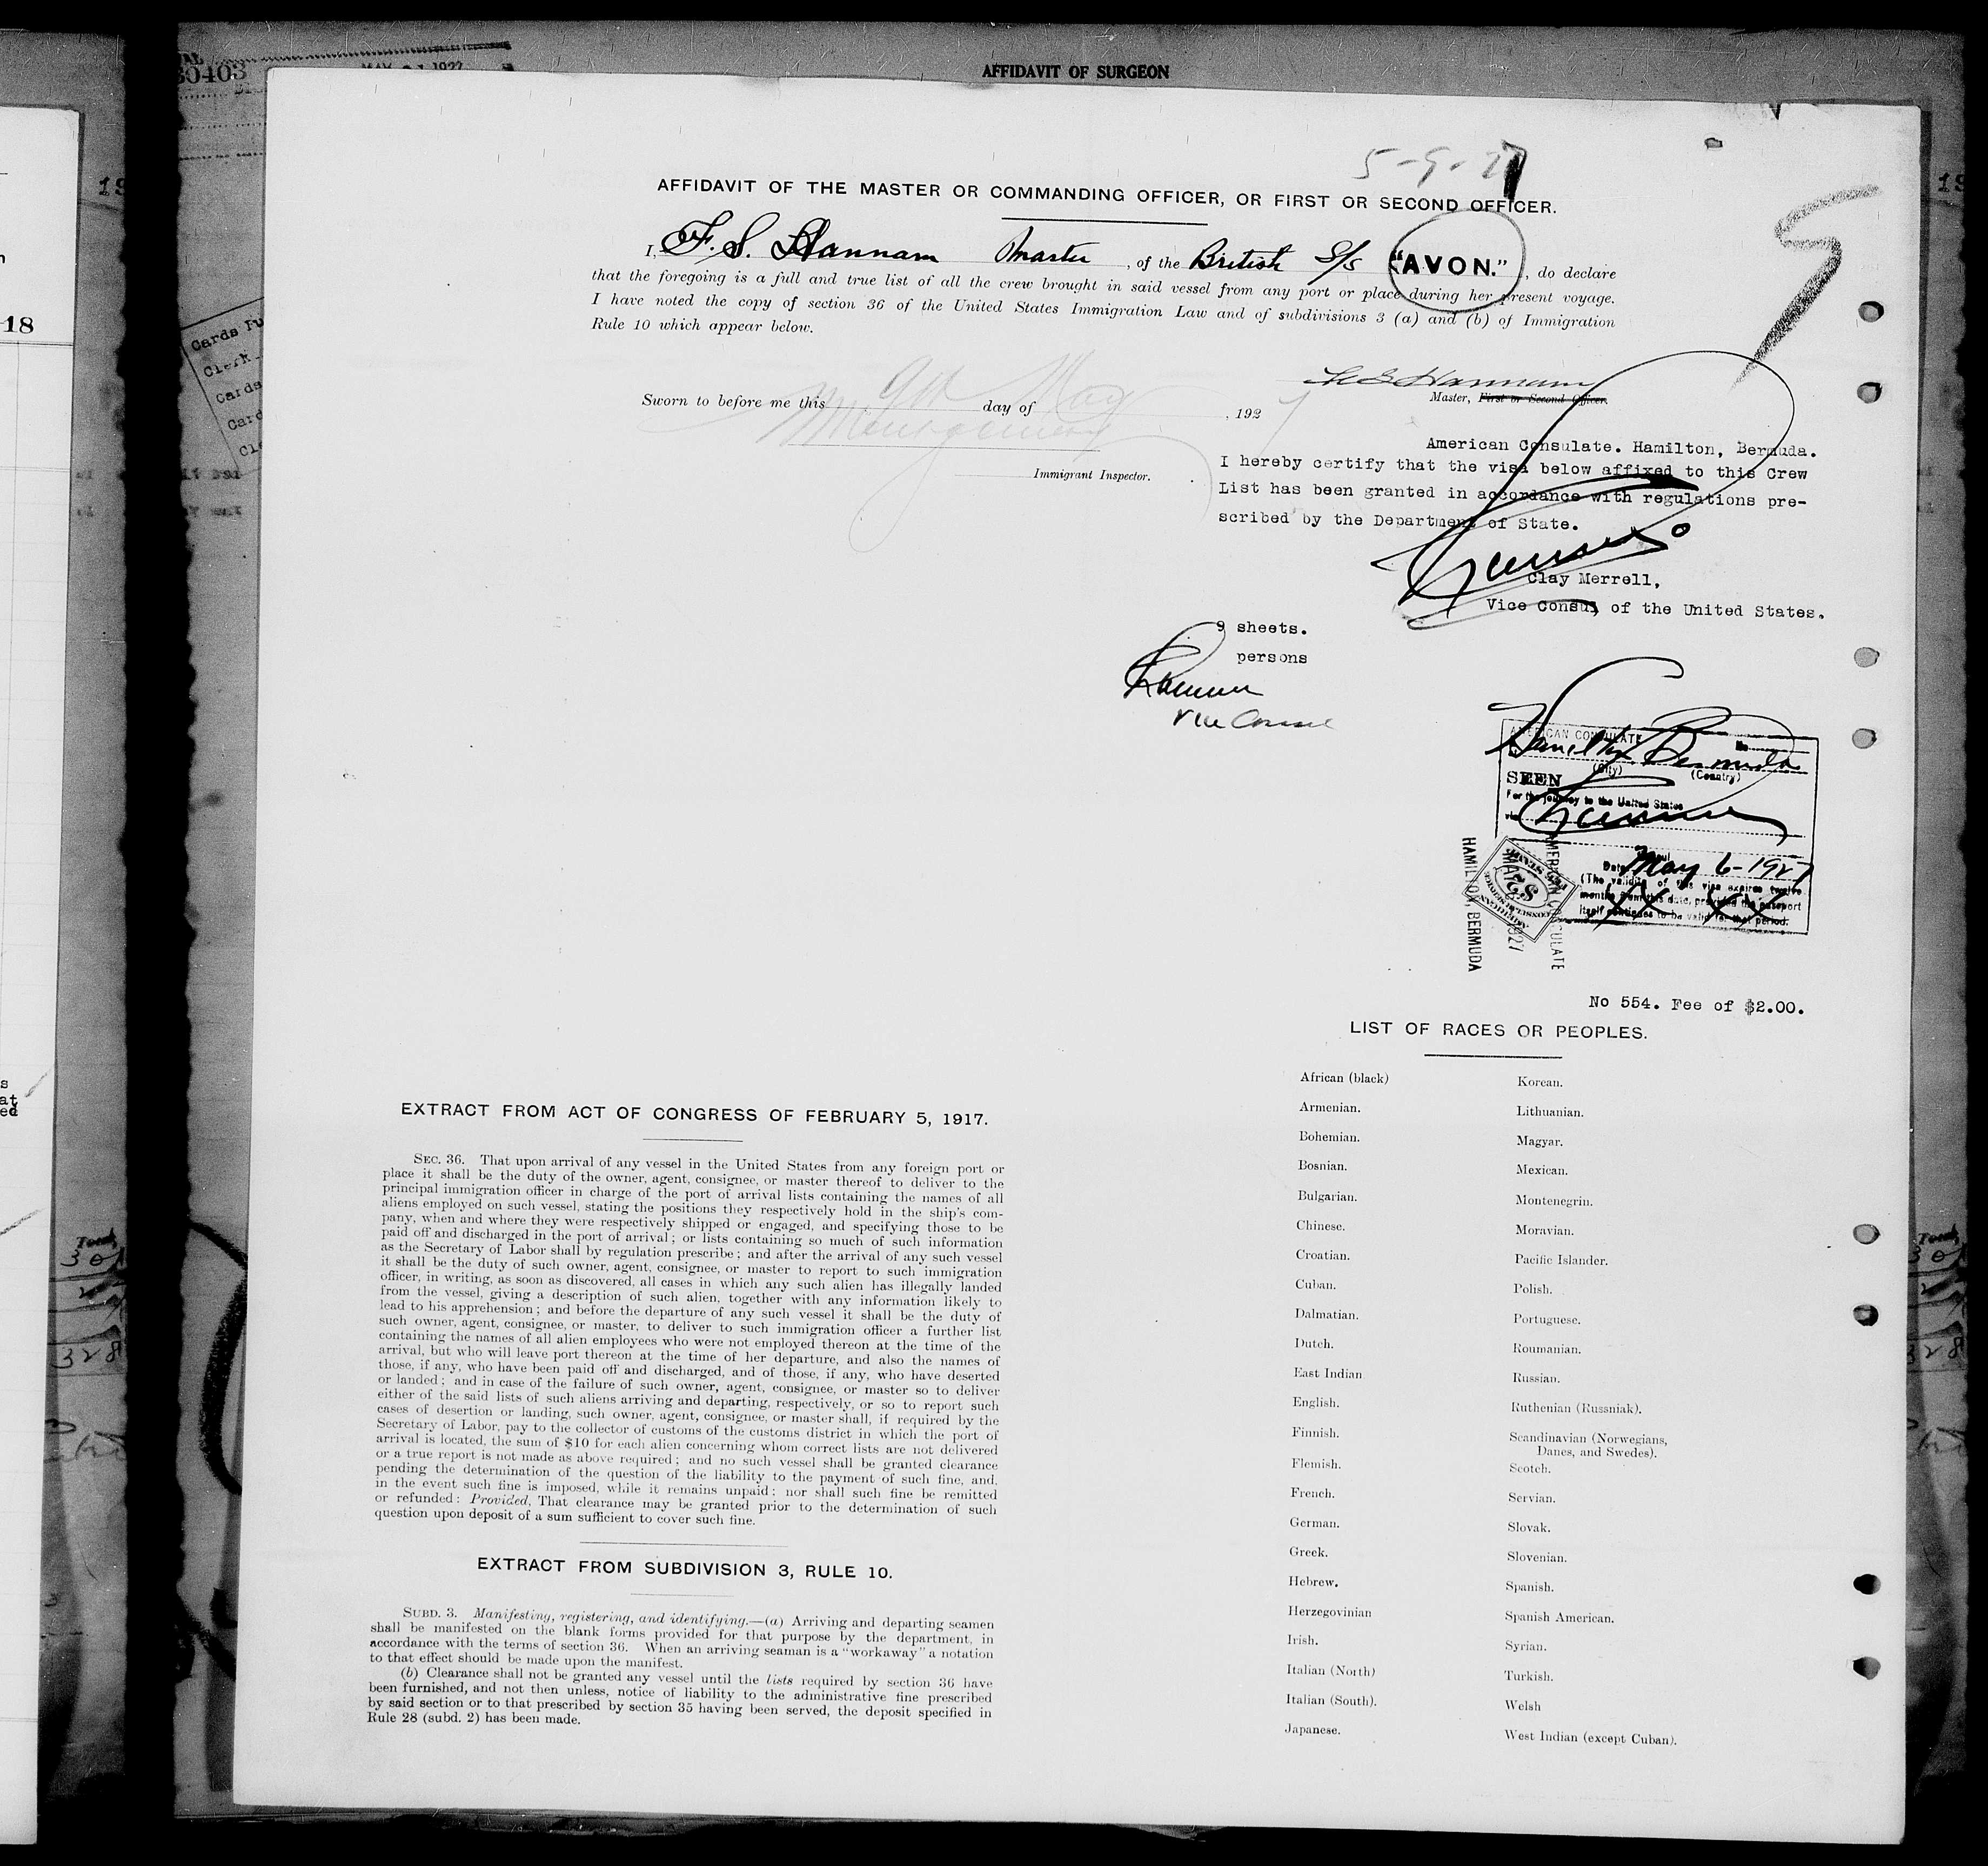 AFFIDAVIT OF SURGEON
30403
MAY 1927
5-9-27
AFFIDAVIT OF THE MASTER OR COMMANDING OFFICER, OR FIRST OR SECOND OFFICER.
I, F. S. Hannam Master, of the British S/s "AVON.", do declare
that the foregoing is a full and true list of all the crew brought in said vessel from any port or place during her present voyage.
I have noted the copy of section 36 of the United States Immigration Law and of subdivisions 3 (a) and (b) of Immigration
Rule 10 which appear below.
F S Hannam
Master, First or Second Officer.
Sworn to before me this 9th day of May, 1927
Immigrant Inspector.
American Consulate. Hamilton, Bermuda.
I hereby certify that the visa below affixed to this Crew
List has been granted in accordance with regulations pre-
scribed by the Department of State.
Clay Merrell,
Vice Consul of the United States.
9 sheets.
persons
Vice Consul
AMERICAN CONSULATE
No
Hamilton Bermuda
(City) (Country)
SEEN
For the journey to the United States
via
Date May 6-1927
(The validity of this visa expires twelve
months from this date, provided the passport
itself continues to be valid for that period.
AMERICAN CONSULATE
HAMILTON, BERMUDA
$2
No 554. Fee of $2.00.
LIST OF RACES OR PEOPLES.
African (black)
Armenian.
Bohemian.
Bosnian.
Bulgarian.
Chinese.
Croatian.
Cuban.
Dalmatian.
Dutch.
East Indian
English.
Finnish.
Flemish.
French.
German.
Greek.
Hebrew.
Herzegovinian
Irish.
Italian (North)
Italian (South).
Japanese.
Korean.
Lithuanian.
Magyar.
Mexican.
Montenegrin.
Moravian.
Pacific Islander.
Polish.
Portuguese.
Roumanian.
Russian.
Ruthenian (Russniak).
Scandinavian (Norwegians,
Danes, and Swedes).
Scotch.
Servian.
Slovak.
Slovenian.
Spanish.
Spanish American.
Syrian.
Turkish.
Welsh
West Indian (except Cuban).
EXTRACT FROM ACT OF CONGRESS OF FEBRUARY 5, 1917.
SEC. 36. That upon arrival of any vessel in the United States from any foreign port or
place it shall be the duty of the owner, agent, consignee, or master thereof to deliver to the
principal immigration officer in charge of the port of arrival lists containing the names of all
aliens employed on such vessel, stating the positions they respectively hold in the ship's com-
pany, when and where they were respectively shipped or engaged, and specifying those to be
paid off and discharged in the port of arrival; or lists containing so much of such information
as the Secretary of Labor shall by regulation prescribe; and after the arrival of any such vessel
it shall be the duty of such owner, agent, consignee, or master to report to such immigration
officer, in writing, as soon as discovered, all cases in which any such alien has illegally landed
from the vessel, giving a description of such alien, together with any information likely to
lead to his apprehension; and before the departure of any such vessel it shall be the duty of
such owner, agent, consignee, or master, to deliver to such immigration officer a further list
containing the names of all alien employees who were not employed thereon at the time of the
arrival, but who will leave port thereon at the time of her departure, and also the names of
those, if any, who have been paid off and discharged, and of those, if any, who have deserted
or landed; and in case of the failure of such owner, agent, consignee, or master so to deliver
either of the said lists of such aliens arriving and departing, respectively, or so to report such
cases of desertion or landing, such owner, agent, consignee, or master shall, if required by the
Secretary of Labor, pay to the collector of customs of the customs district in which the port of
arrival is located, the sum of $10 for each alien concerning whom correct lists are not delivered
or a true report is not made as above required; and no such vessel shall be granted clearance
pending the determination of the question of the liability to the payment of such fine, and,
in the event such fine is imposed, while it remains unpaid; nor shall such fine be remitted
or refunded: Provided, That clearance may be granted prior to the determination of such
question upon deposit of a sum sufficient to cover such fine.
EXTRACT FROM SUBDIVISION 3, RULE 10.
SUBD. 3. Manifesting, registering, and identifying.—(a) Arriving and departing seamen
shall be manifested on the blank forms provided for that purpose by the department, in
accordance with the terms of section 36. When an arriving seaman is a "workaway" a notation
to that effect should be made upon the manifest.
(b) Clearance shall not be granted any vessel until the lists required by section 36 have
been furnished, and not then unless, notice of liability to the administrative fine prescribed
by said section or to that prescribed by section 35 having been served, the deposit specified in
Rule 28 (subd. 2) has been made.